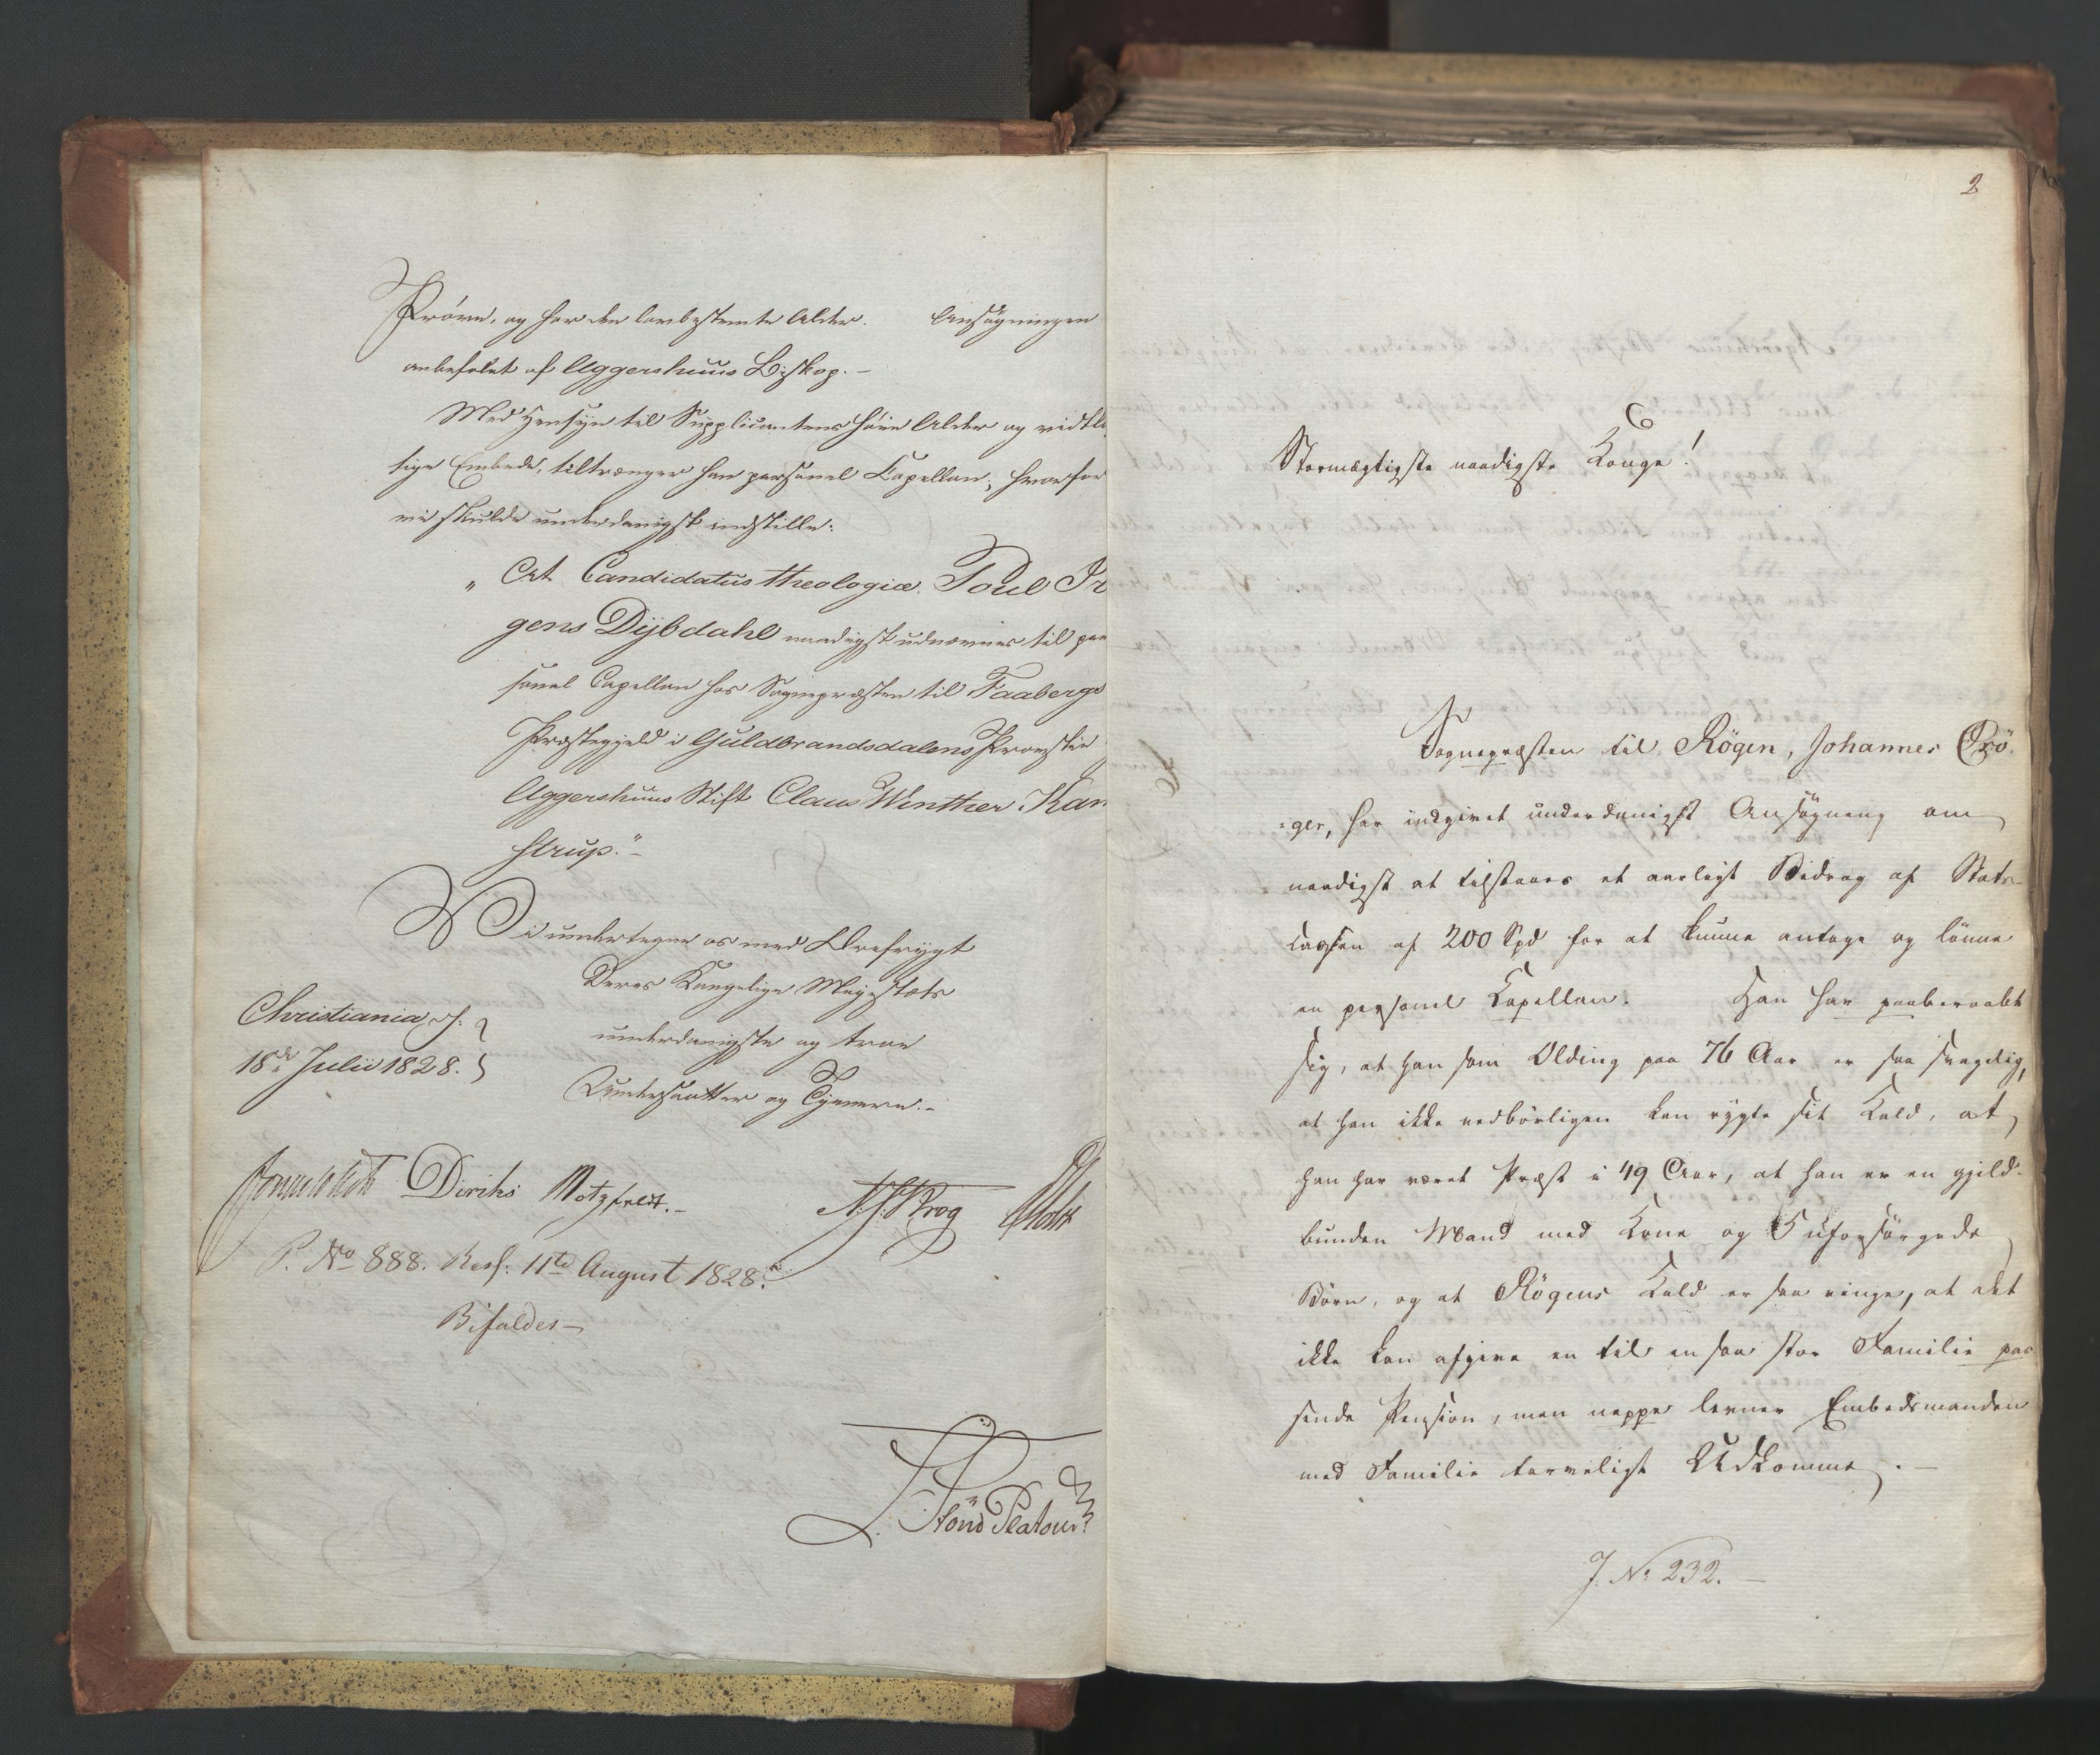 Prøve, og har den lovbestemte Alder. Ansøgningen
anbefalet af Aggershuus Biskop.-
Med Hensyn til Supplicantens høie Alder og vidtlø
tige Embede, tiltrænger han personel Capellan; hvorfor
vi skulde underdanigst indstille:
„ At Candidatus theologiæ Poul Ir
gens Dÿbdahl naadigst udnævnes til per
sonel Capellan hos Sognepræsten til Faabergs
Præstegjeld i Guldbrandsdalens Provstie
Aggershuus Stift Claus Winther Kam
strup."-
Vi undertegne os med Ærefrygt
Deres Kongelige Majestæts
underdanigste og troe
Undersaatter og Tjenere.-
Christiania d.
18de Julii 1828.
Diriks Motzfeldt.- N. J. Krog Holst
P. No 888. Resf: 11te August 1828.
Bifaldes-
L. Stoud Platou
2
Stormægtigste naadigste Konge!
Sognepræsten til Rögen, Johannes Crö-
ger, har indgivet underdanigst Ansøgning om
naadigst at tilstaaes et aarligt Bidrag af Stats-
cassen af 200 Spd for at kunne antage og lönne
en personel Kapellan. Han har paaberaabt
sig, at han som Olding paa 76 Aar er saa svagelig,
at han ikke nedbörligen kan rygte sit Kald, at
han har været Præst i 49 Aar, at han er en gjeld-
bunden Mand med Kone og 5 uforsörgede
Börn, og at Rögens Kald er saa ringe, at det
ikke kan afgive en til en saa stor Familie pas
sende Pension, men neppe levner Embedsmanden
med Familie tarveligt Udkomme.-
J. No 232.-